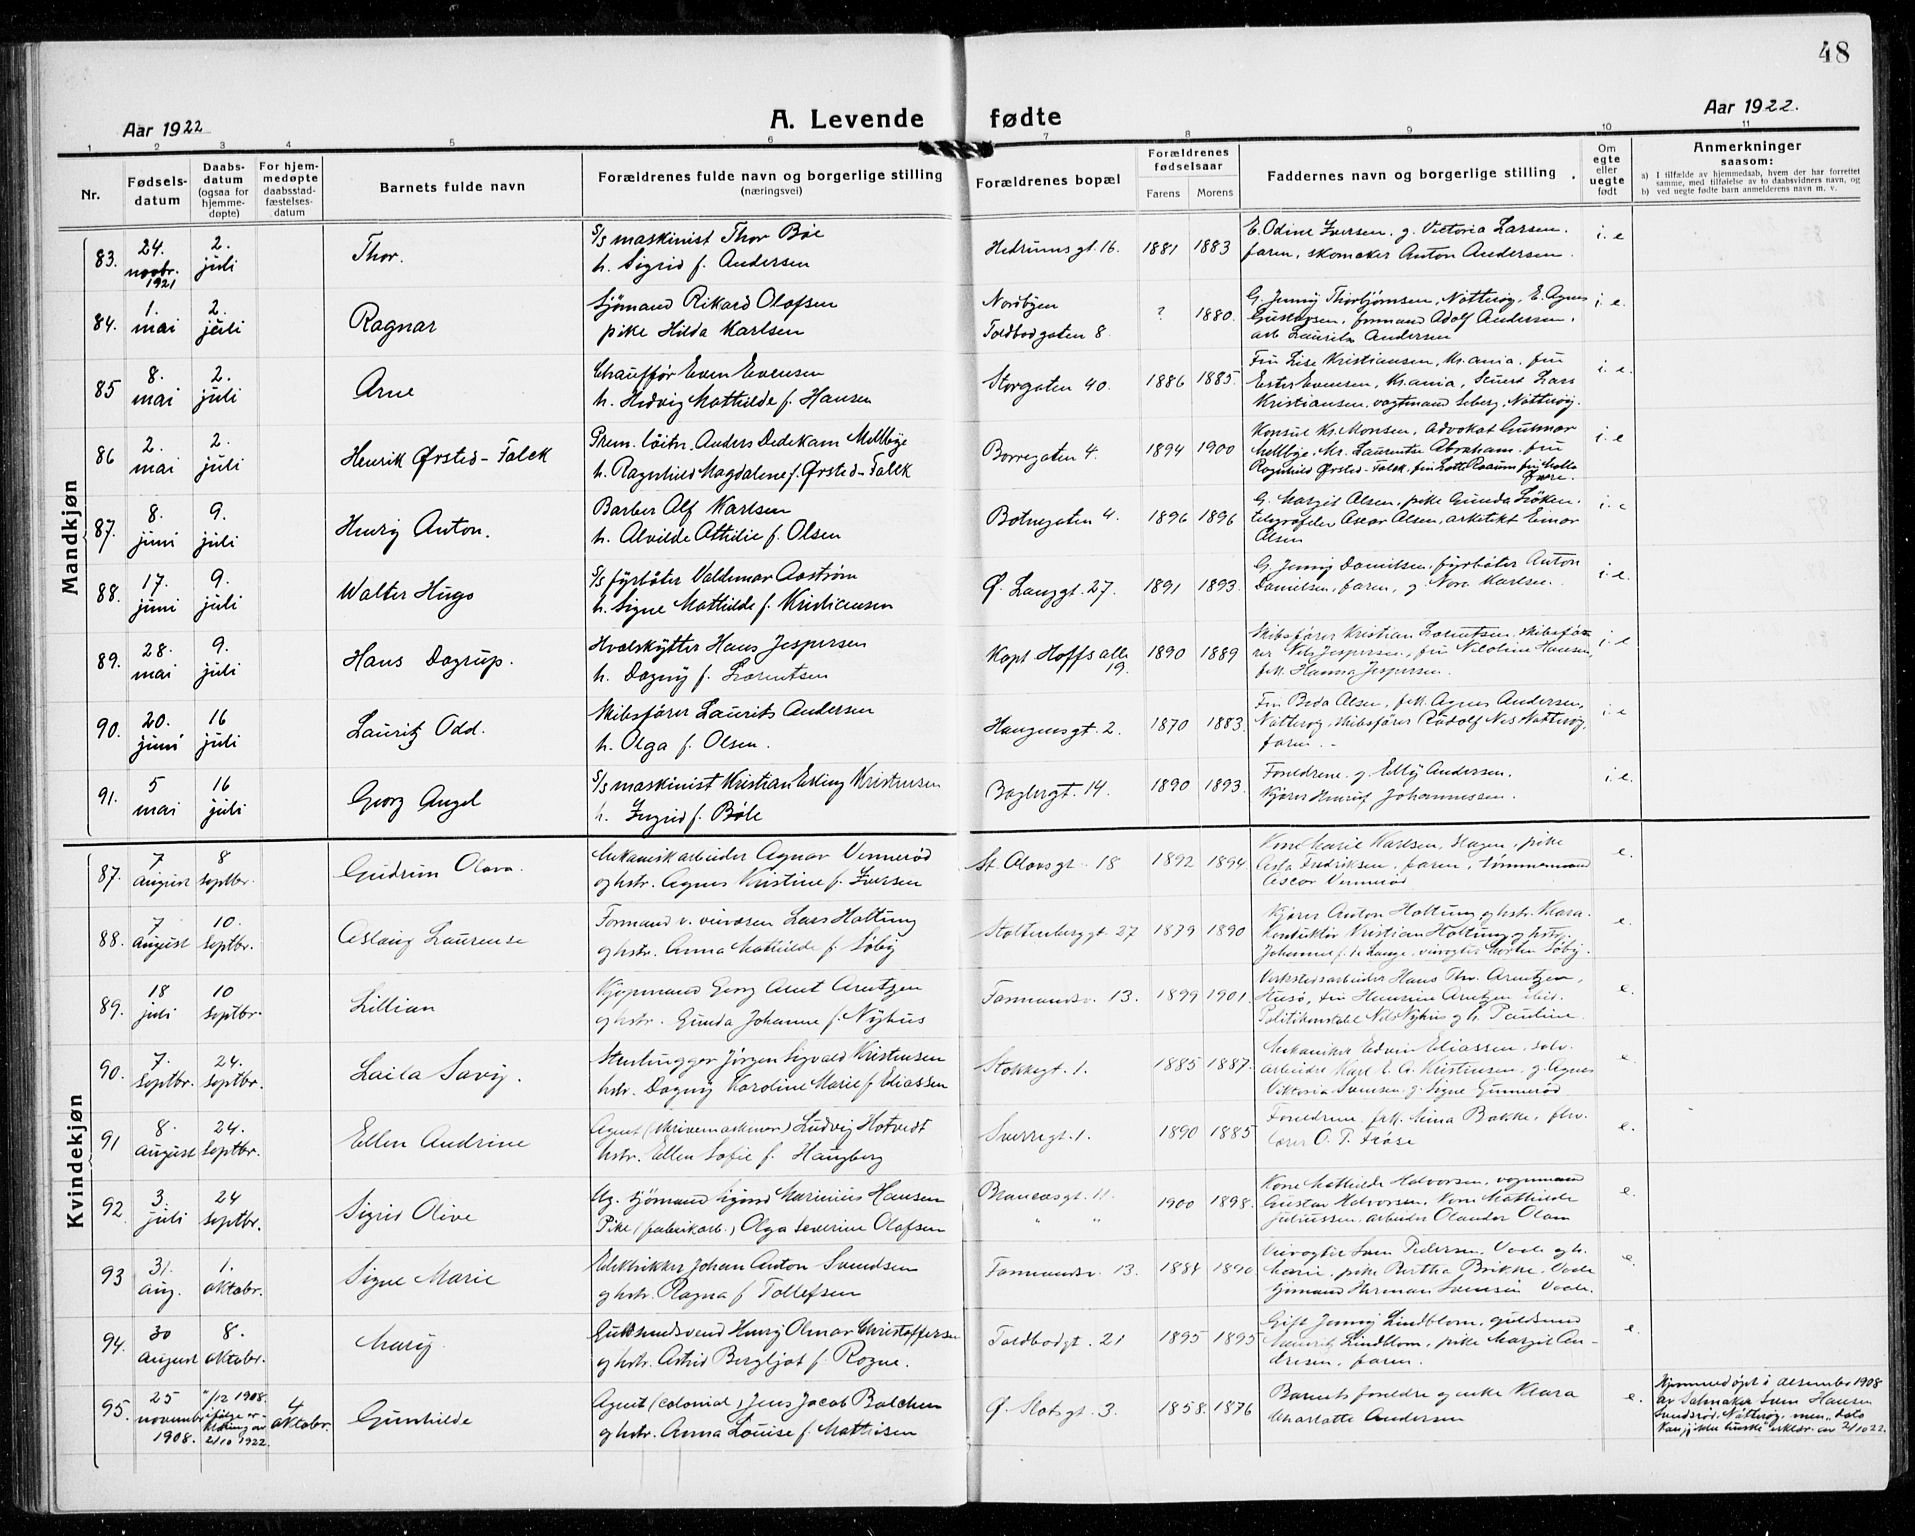 48
Aar 1922
A. Levende fødte
Aar 1922.
1 2 3 4 5 6 7 8 9 10 11
Nr.
Fødsels-
datum
Daabs-
datum
(ogsaa for
hjemme-
døpte)
For hjem-
medøpte
daabsstad-
fæstelses-
datum
Barnets fulde navn
Forældrenes fulde navn og borgerlige stilling
(næringsvei)
Forældrenes bopæl
Forældrenes
fødselsaar
Farens Morens
Faddernes navn og borgerlige stilling
Om
egte
eller
uegte
født
Anmerkninger
saasom:
a) I tilfælde av hjemmedaab, hvem der har forrettet
samme, med tilføielse av to daabsvidners navn, og
b) ved uegte fødte barn anmelderens navn m. v.
Mandkjøn
83. 24. novbr. 1921 2. juli Thor.
S/S maskinist Thor Bøe
h. Sigrid f. Andersen
Hedrumsgt. 16. 1881 1883
E. Odine Iversen, g. Victoria Larsen.
faren, skomaker Anton Andersen.
i. e
84. 1. mai 2. juli Ragnar
Sjømand Rikard Olafsen
pike Hilda Karlsen
Nordbyen
Toldbodgaten 8.
? 1880.
G. Jenny Thorbjørnsen, Nøtterøy, E. Agnes
Gustavsen, formand Adolf Andersen.
arb. Lauritz Andersen
i. e.
85 8. mai 2. juli Arne
Chauffør Even Evensen
h. Hedvig Mathilde f. Hansen
Storgaten 40. 1886 1885.
Fru Lise Kristiansen, Kr.ania. fru
Ester Evensen, Kr.ania, Lars
Kristiansen, vagtmand Seberg, Nøtterøy.
i. e.
86 2. mai 2. juli Henrik Ørsted-Falck
Prem. løitn. Anders Dedekam Mellbye
h. Ragnhild Magdalene f. Ørsted-Falck
Borregaten 4. 1894 1900
Konsul Kr. Monsen, Advokat Gunnar
Mellbye, Laurentse Abraham. fru
Ragnhild Ørsted-Falck. fru Lotte fru
i. e
87. 8. juni 9. juli Henry Anton.
Barber Alf Karlsen
h. Alvilde Othilie f. Olsen
Botnegaten 4. 1896 1896
G. Margit Olsen, pike Gunda Løken.
telegrafeler Oscar Olsen, arkitekt Einar
Olsen
i. e
88. 17. juni 9. juli Walter Hugo
S/S fyrbøter Valdemar Aastrøm
h. Signe Mathilde f. Kristiansen
Ø. Langgt. 27. 1891 1893.
G. Jenny Danielsen, fyrbøter Anton
Danielsen, faren, g. Nora Karlsen.
i. e.
89. 28. mai 9. juli Hans Dagrup.
Hvalskytter Hans Jespersen
h. Dagny f. Lorentsen
Kapt Hoffs alle
19.
1890 1889
Skibsfører Kristian Lorentsen, skibsfø-
rer Nils Jespersen, fru Nicoline Hansen,
frk. Hanna Jespersen.
i. e
90. 20. juni 16 juli Lauritz Odd.
Skibsfører Laurits Andersen
h. Olga f. Olsen.
Haugensgt. 2. 1870 1883.
Fru Beda Olsen, frk. Agnes Andersen,
Nøtterøy, skibsfører Rudolf Nes Nøtterøy,
faren.
i. e
91. 5 mai 16 juli Georg Angel
S/S maskinist Kristian Erling Kristensen
h. Ingrid f. Bøle
Baglergt. 14. 1890 1893.
Foreldrene. g. Elly Andersen.
Kjører Henrik Johannessen.
i. e.
Kvindekjøn
87. 7 August 8 Septbr. Gudrun Olava.
Mekanisk arbeider Agnar Vennerød
og hstr. Agnes Kristine f. Iversen
St. Olavsgt. 18 1892 1894
Kone Marie Karlsen, Hagen, pike
Asta Fredriksen, faren, tømmermand
Oscar Vennerød
e.
88. 7 August 10. Septbr. Aslaug Laurense
Formand v. veivæsen Lars Holtung
og hstr. Anna Mathilde f. Søby
Stoltenberggt. 27 1879 1890
Kjører Anton Holtung og hstr. Klara.
Konduktør Kristian Holtung og hstr.
Johanne f. de Lange, veivogter Morten Søby.
e.
89. 18 juli 10 Septbr. Lillian
Kjøpmand Georg Arnt Arntzen
og hstr. Gunda Johanne f. Nyhus
Farmandsv. 13. 1899 1901.
Verkstedsarbeider Hans Thv. Arntzen,
Husø, fru Henrine Arntzen ibid.
Politikonstabel Nils Nyhus og h. Pauline.
e.
90. 7. Septbr. 24. Septbr. Laila Savy.
Stenhugger Jørgen Sigvald Kristensen
hstr. Dagny Karoline Marie f. Eliassen
Stokkegt. 1. 1885 1887.
Mekaniker Edvin Eliassen, sølv.
arbeidre Karl E. G. Kristensen, g. Agnes
Viktoria Svensen, g. Signe Gunnerød
e.
91 8. August 24. Septbr. Ellen Andrine
Agent (skrivemaskiner) Ludvig Hotvedt
hstr. Ellen Sofie f. Haugberg
Sverregt. 1. 1890 1885
Foreldrene, frk. Mina Bakke,
lærer O. T. Frøse
e.
92. 3. juli 24 Septbr. Sigrid Olive
Ug. sjømand Marinius Hansen
Pike (fabrikarb.) Olga Severine Olafsen
Brancasgt. 11.
" "
1900 1898.
Kone Mathilde Halvorsen, vognmand
Gustav Halvorsen, Kone Mathilde
Juliussen, arbeider Olander Olsen
e.
93 31. Aug. 1. Oktobr. Signe Marie
Elektriker Johan Anton Svendsen
og hstr. Ragna f. Tollefsen
Farmandsv. 13. 1884 1890
Veivogter Sven Pedersen, Vaale og h.
Marie, pike Bertha Brikke, Vaale
sjømand Herman Svensen Vaale.
e.
94. 30 August 8. Oktobr. Mary
Guldsmedsvend Henry Olmar Christoffersen
og hstr. Astrid Bergljot f. Rogne.
Toldbodgt. 21 1895 1895
Gift Jenny Lindblom, guldsmed
Lindblom, pike Margit An-
dresen, faren.
e.
95. 25 november 1908. "/12 1908. ifølge er-
klæring av
2/10 1922. 4 Oktobr. Gunhilde
Agent (colonial) Jens Jacob Balchen
og hstr. Anna Louise f. Mathisen
Ø. Slotsgt. 3. 1858. 1876
Barnets foreldre og enke Klara
Charlotte Andersen
e.
Hjemmedøpt i desember 1908
av Salmaker Sven Hansen
Sundsrød, Nøtterøy, men "dato
kan ikke huske" erklær. av 2/10 22.